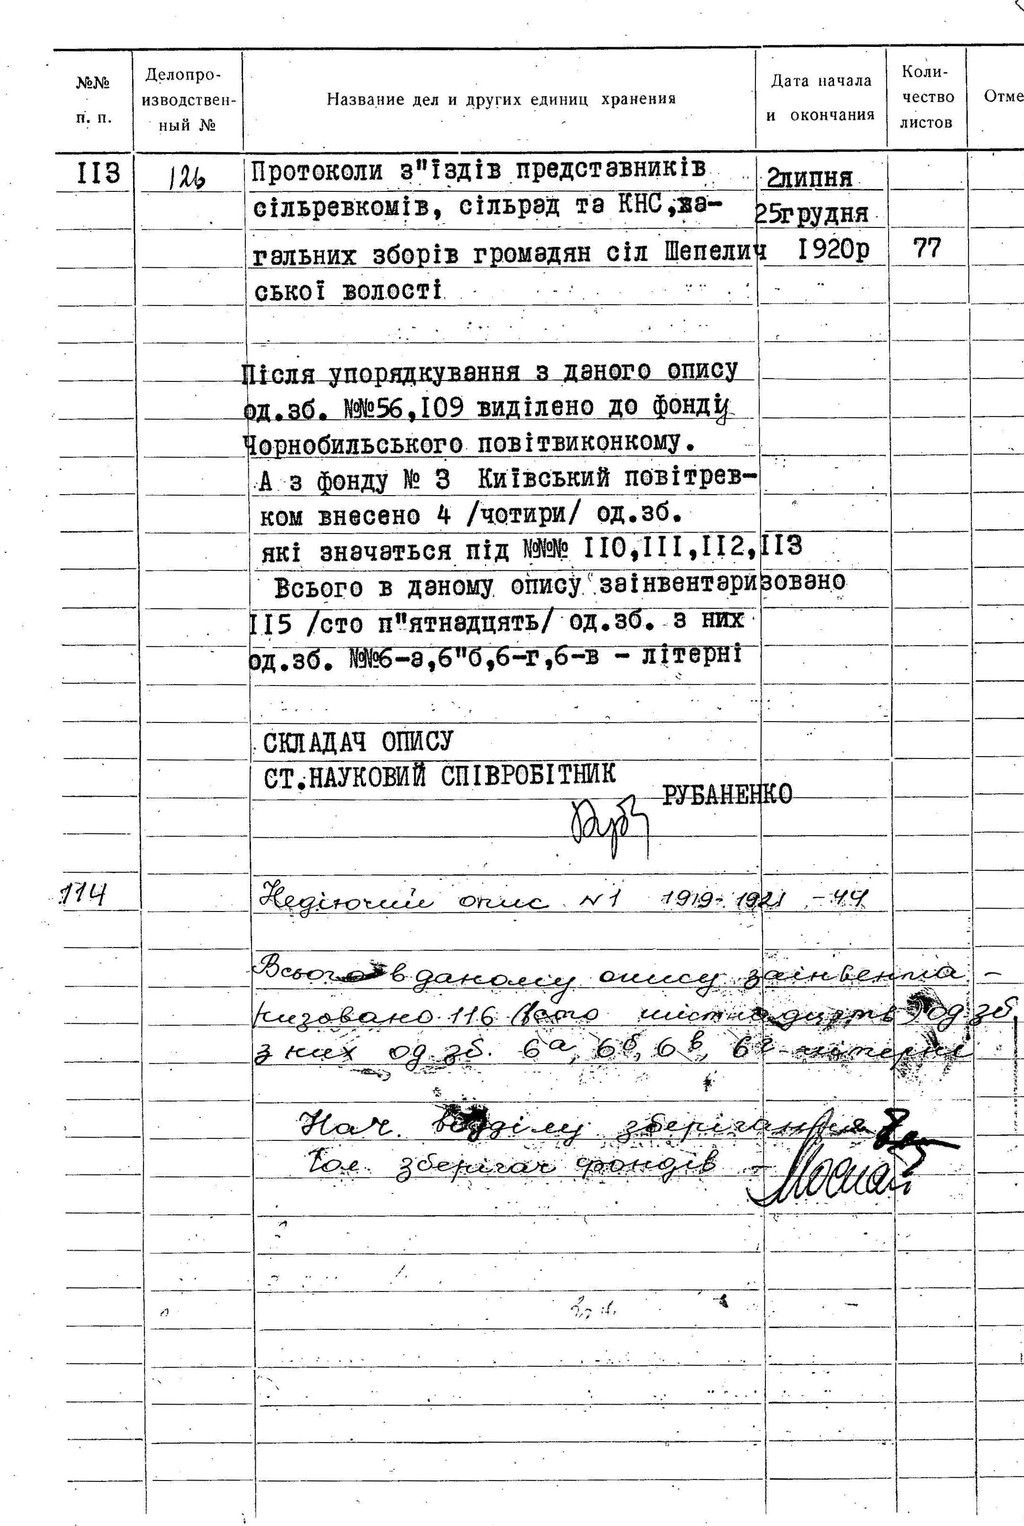 №№ п. п.
Делопро-
изводствен-
ный №
Название дел и других единиц хранения
Дата начала
и окончания
Коли-
чество
листов
Отме
II3 126 Протоколи з"їздів представників 2липня
сільревкомів, сільрад та КНС, за- 25грудня
гальних зборів громадян сіл Шепелич I920р 77
ської волості
Після упорядкування з даного опису
од.зб. №№56,I09 виділено до фонду
Чорнобильського повітвиконкому.
А з фонду № 3 Київський повітрев-
ком внесено 4 /чотири/ од.зб.
які значаться під №№№ II0,III,II2,II3
Всього в даному опису заінвентаризовано
II5 /сто п"ятнадцять/ од.зб. з них
од.зб. №№6-а,6"б,6-г,6-в - літерні
СКЛАДАЧ ОПИСУ
СТ.НАУКОВИЙ СПІВРОБІТНИК
РУБАНЕНКО
114 Недіючий опис N1 1919-1921 - 44
Всього в даному опису заінвента-
ризовано 116 (сто шістнадцять) од зб
з них од зб. 6а, 6б, 6в, 6г - літерні
Нач. відділу зберігання
Гол. зберігач фондів -